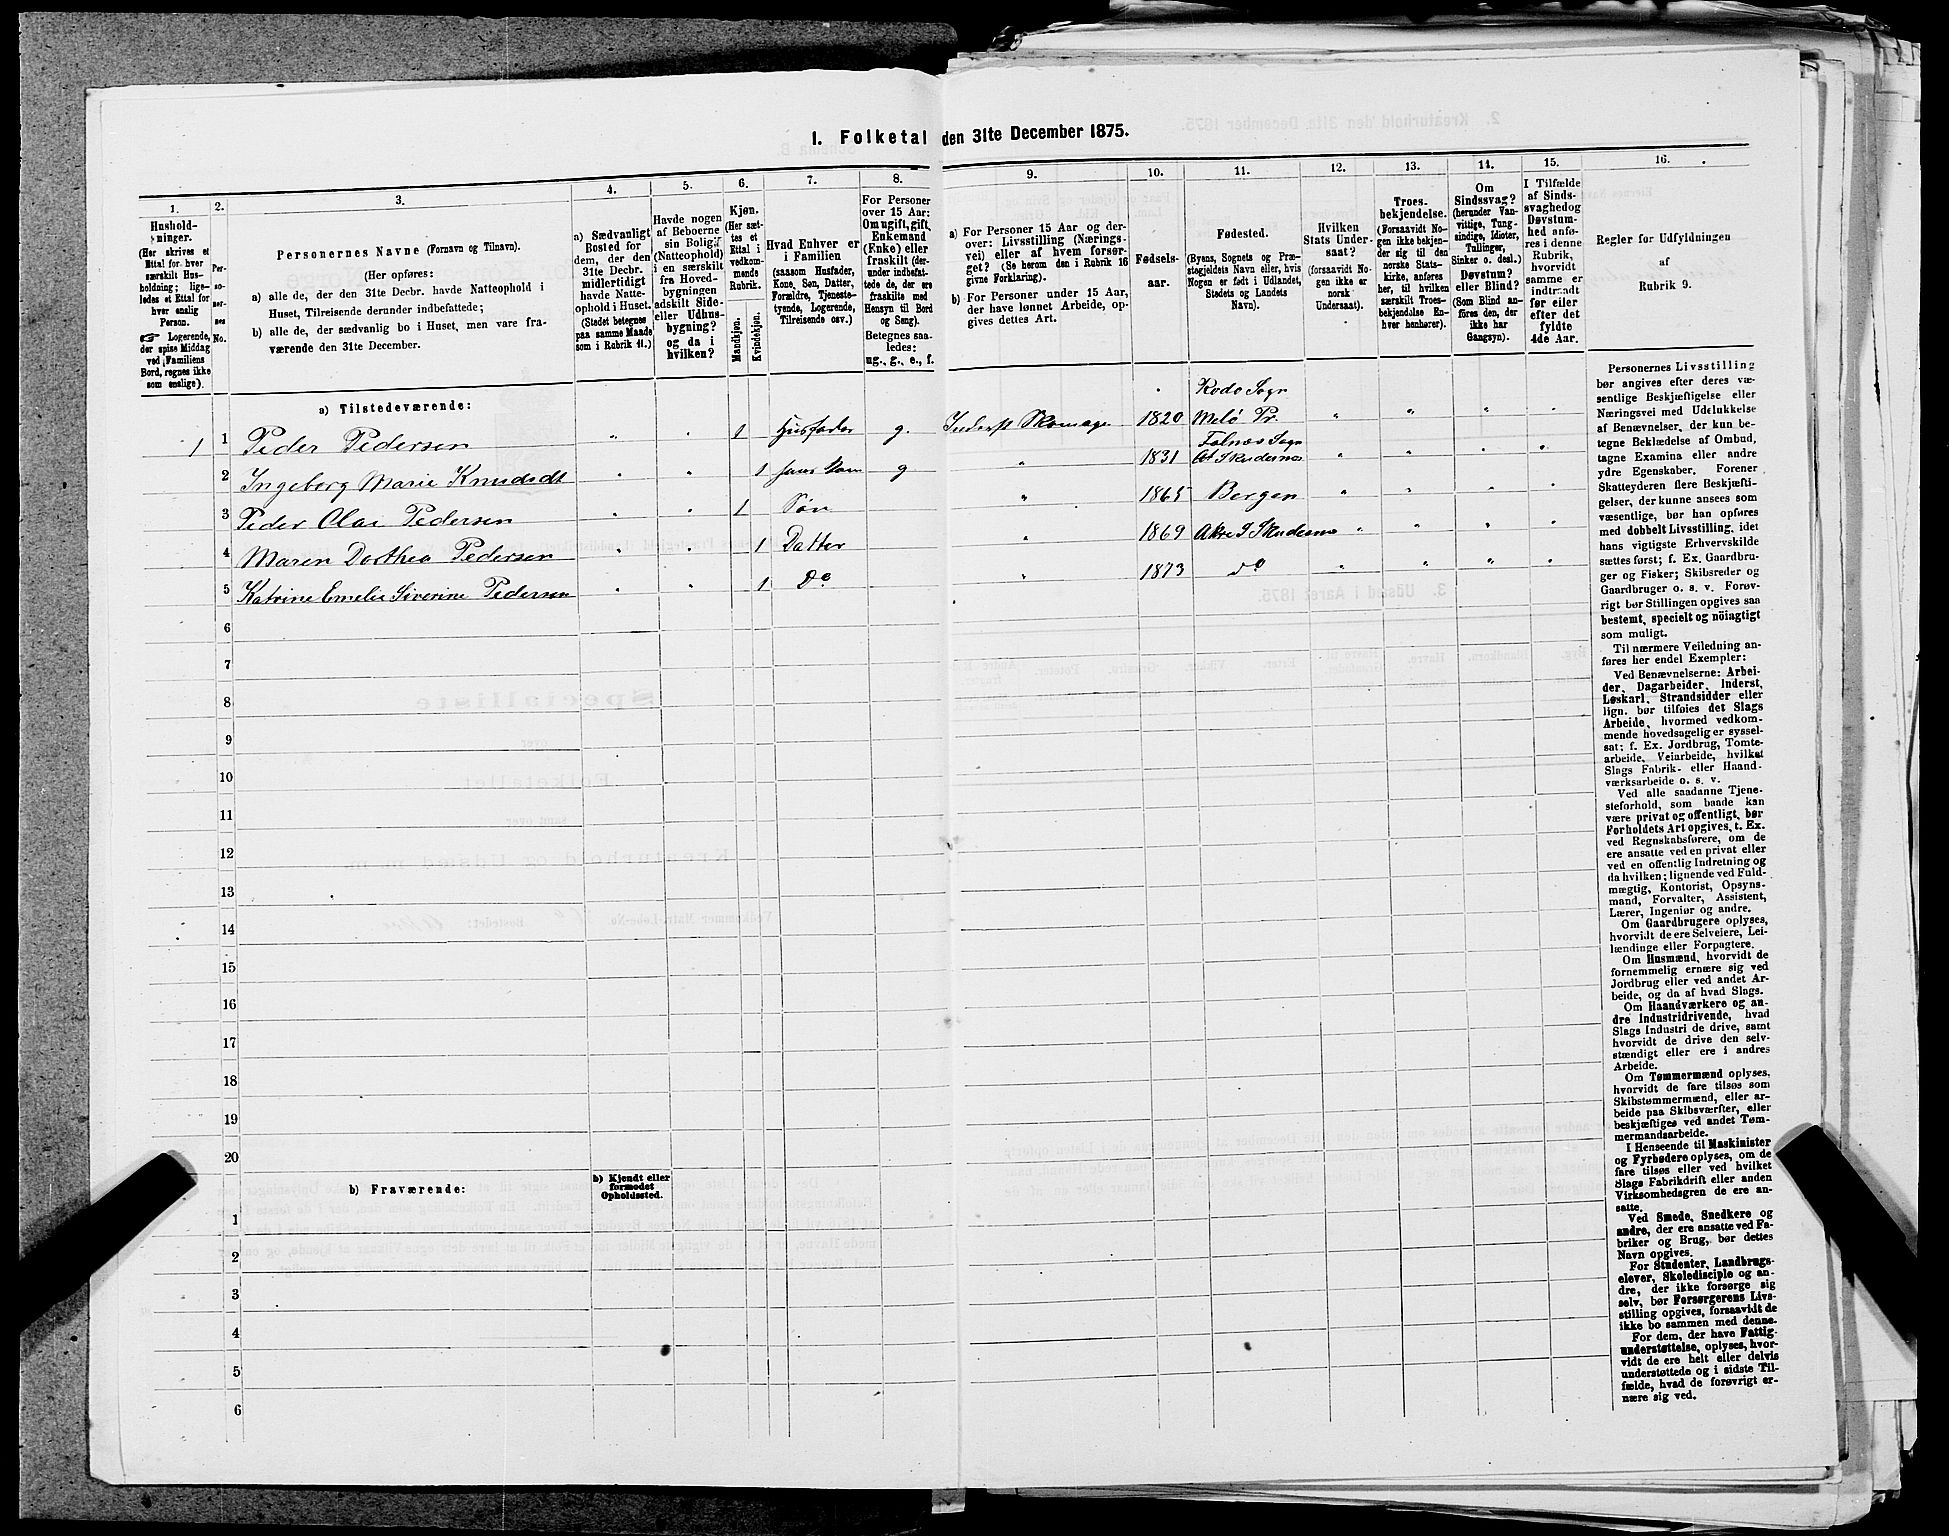 1. Folketal den 31te December 1875.
1.
Hushold-
ninger.
(Her skrives et
Ettal for hver
særskilt Hus-
holdning; lige-
ledes et Ettal for
hver enslig
Person.
☞ Logerende,
der spise Middag
ved Familiens
Bord, regnes ikke
som enslige).
2.
Per-
so-
ner-
nes
No.
3.
Personernes Navne (Fornavn og Tilnavn).
(Her opføres:
a) alle de, der den 31te Decbr. havde Natteophold i
Huset, Tilreisende derunder indbefattede;
b) alle de, der sædvanlig bo i Huset, men vare fra-
værende den 31te December.
4.
a) Sædvanligt
Bosted for
dem, der den
31te Decbr.
midlertidigt
havde Natte-
ophold i Huset.
(Stedet betegnes
paa samme Maade
som i Rubrik 11.)
5.
Havde nogen
af Beboerne
sin Bolig
(Natteophold)
i en særskilt
fra Hoved-
bygningen
adskilt Side-
eller Udhus-
bygning?
og da i
hvilken?
6.
Kjøn.
(Her sæt-
tes et
Ettal i
vedkom-
mende
Rubrik.
Mandkjøn.
Kvindekjøn.
7.
Hvad Enhver er
i Familien
(saasom Husfader,
Kone, Søn, Datter,
Forældre, Tjeneste-
tyende, Logerende,
Tilreisende osv.)
8.
For Personer
over 15 Aar:
Om ugift, gift,
Enkemand
(Enke) eller
fraskilt (der-
under indbefat-
tede de, der ere
fraskilte med
Hensyn til Bord
og Seng).
Betegnes saa-
ledes:
ug., g., e., f.
9.
a) For Personer 15 Aar og der-
over: Livsstilling (Nærings-
vei) eller af hvem forsør-
get? (Se herom den i Rubrik 16
givne Forklaring).
b) For Personer under 15 Aar,
der have lønnet Arbeide, op-
gives dettes Art.
10.
Fødsels-
aar.
11.
Fødested.
(Byens, Sognets og Præ-
stegjeldets Navn eller, hvis
Nogen er født i Udlandet,
Stedets og Landets
Navn).
12.
Hvilken
Stats Under-
saat?
(forsaavidt No-
gen ikke er
norsk
Undersaat).
13.
Troes-
bekjendelse.
(Forsaavidt No-
gen ikke bekjen-
der sig til den
norske Stats-
kirke, anføres
her, til hvilken
særskilt Troes-
bekjendelse En-
hver henhører).
14.
Om
Sindssvag?
(herunder Van-
vittige, Tung-
sindige, Idioter,
Tullinger,
Sinker o. desl.)
Døvstum?
eller Blind?
(Som Blind an-
føres den, der
ikke har
Gangsyn).
15.
I Tilfælde
af Sinds-
svaghed og
Døvstum-
hed anfø-
res i denne
Rubrik,
hvorvidt
samme er
indtraadt
før eller
efter det
fyldte
4de Aar.
16.
Regler for Udfyldningen
af
Rubrik 9.
a) Tilstedeværende:
Rødø Sogn
1 1 Peder Pedersen " " 1 Husfader g. Inderst Skomager 1820 Melø Pr " " " "
Falnæs Sogn
2 Ingeborg Marie Knudsdt " " 1 hans Kone g " 1831 Skudesnæs " " " "
3 Peder Olai Pedersen " " 1 Søn " 1865 Bergen " " " "
4 Maren Dorthea Pedersen " " 1 Datter " 1869 Akre S Skudesnæs " " " "
5 Katrine Emelie Siverine Pedersen " " 1 Do " 1873 do " " " "
6
7
8
9
10
11
12
13
14
15
16
17
18
19
20
b) Fraværende:
b) Kjendt eller
formodet
Opholdssted.
1
2
3
4
5
6
Personernes Livsstilling
bør angives efter deres væ-
sentlige Beskjæftigelse eller
Næringsvei med Udelukkelse
af Benævnelser, der kun be-
tegne Beklædelse af Ombud,
tagne Examina eller andre
ydre Egenskaber. Forener
Skatteyderen flere Beskjæfti-
gelser, der kunne ansees som
væsentlige, bør han opføres
med dobbelt Livsstilling, idet
hans vigtigste Erhvervskilde
sættes først; f. Ex. Gaardbru-
ger og Fisker; Skibsreder og
Gaardbruger o. s. v. Forøv-
rigt bør Stillingen opgives saa
bestemt, specielt og nöiagtigt
som muligt.
Til nærmere Veiledning an-
føres her endel Exempler:
Ved Benævnelserne: Arbei-
der, Dagarbeider, Inderst,
Løskarl, Strandsidder eller
lign. bør tilføies det Slags
Arbeide, hvormed vedkom-
mende hovedsagelig er syssel-
sat; f. Ex. Jordbrug, Tomte-
arbeide, Veiarbeide, hvilket
Slags Fabrik- eller Haand-
værksarbeide o. s. v.
Ved alle saadanne Tjene-
steforhold, som baade kan
være privat og offentligt, bør
Forholdets Art opgives, t. Ex.
ved Regnskabsførere, om de
ere ansatte ved en privat eller
ved en offentlig Indretning og
da hvilken; lignende ved Fuld-
mægtig, Kontorist, Opsyns-
mand, Forvalter, Assistent,
Lærer, Ingeniør og andre.
Om Gaardbrugere oplyses,
hvorvidt de ere Selveiere, Lei-
lændinge eller Forpagtere.
Om Husmænd, hvorvidt de
fornemmelig ernære sig ved
Jordbrug eller ved andet Ar-
beide, og da af hvad Slags.
Om Haandværkere og an-
dre Industridrivende, hvad
Slags Industri de drive, samt
hvorvidt de drive den selv-
stændigt eller ere i andres
Arbeide.
Om Tømmermænd oplyses,
hvorvidt de fare tilsøs som
Skibstømmermænd, eller ar-
beide paa Skibsværfter, eller
beskjæftiges ved andet Tøm-
mermandsarbeide.
I Henseende til Maskinister
og Fyrbødere oplyses, om de
fare tilsøs eller ved hvilket
Slags Fabrikdrift eller anden
Virksomhedsgren de ere an-
satte.
Ved Smede, Snedkere og
andre, der ere ansatte ved Fa-
briker og Brug, bør dettes
Navn opgives.
For Studenter, Landbrugs-
elever, Skoledisciple og an-
dre, der ikke forsørge sig
selv, bør Forsørgerens Livs-
stilling opgives, forsaavidt de
ikke bo sammen med denne.
For dem, der have Fattig-
understøttelse, oplyses, hvor-
vidt de ere helt eller delvis
understøttede og i sidste Til-
fælde, hvad de forøvrigt er-
nære sig ved.